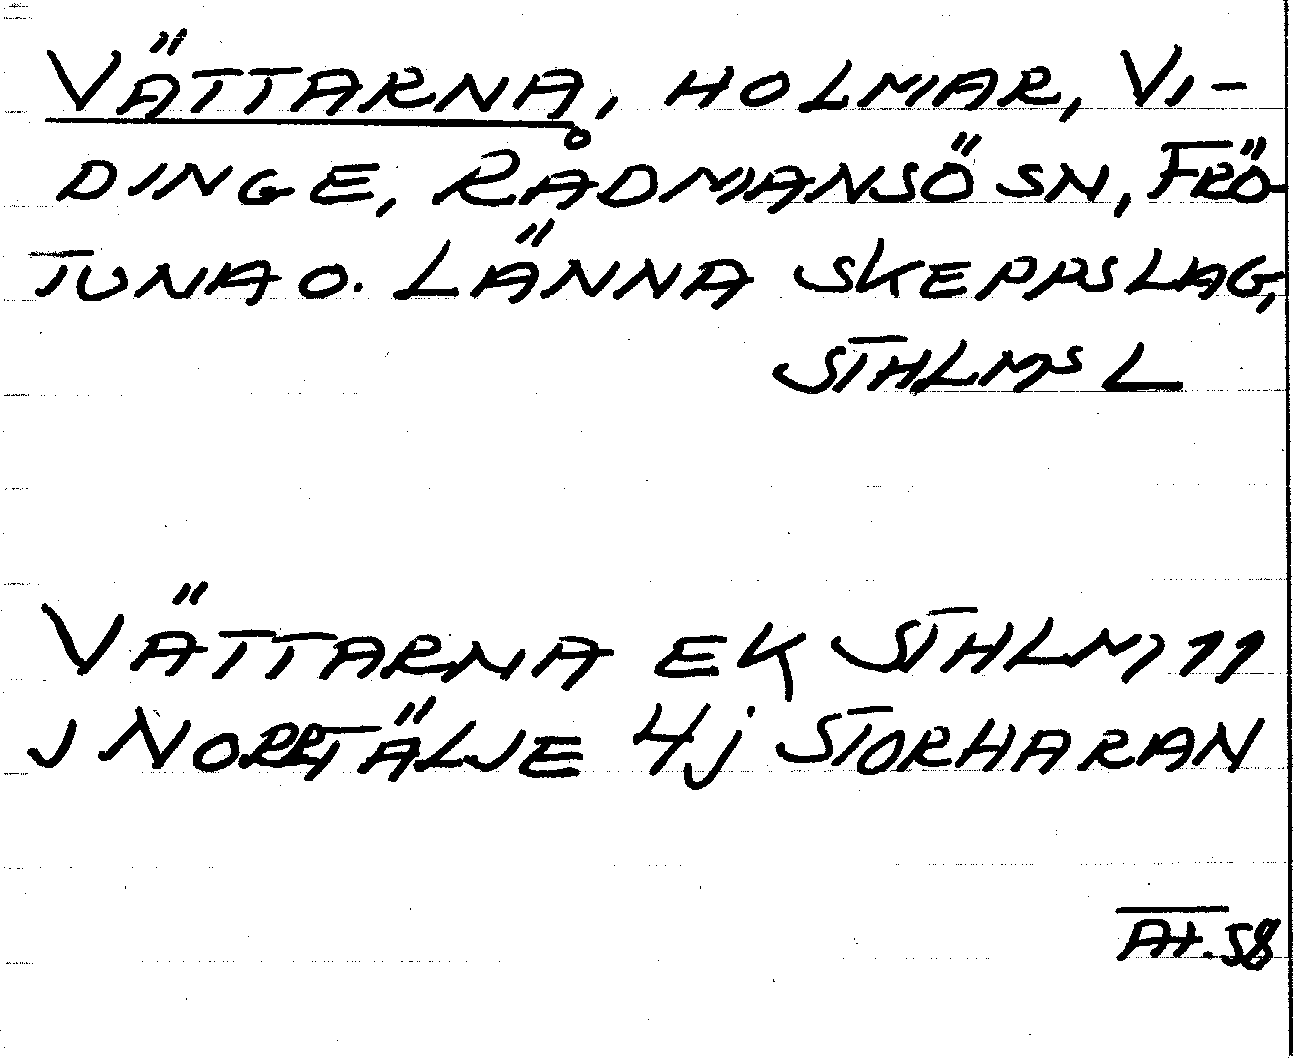 VÄTTARNA, HOLMAR, VI-
DINGE, RÅDMANSÖ SN, FRÖ-
TUNA O. LÄNNA SKEPPSLAG,
STHLMS L
VÄTTARNA EK STHLM 11
J NORRTÄLJE 4j STORHARAN
At. 58